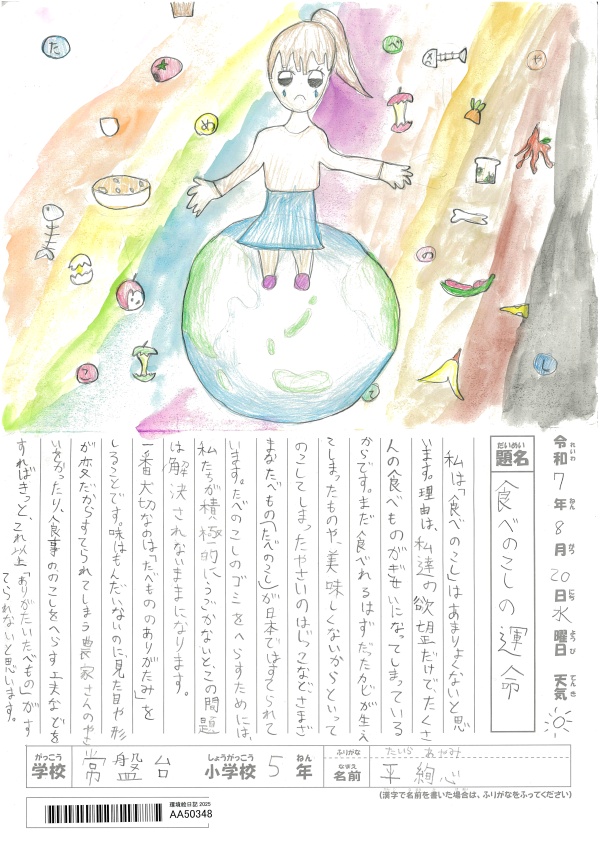 た
べ
や
め
の
し
っ
て
令和7年8月20日水曜日 天気
れいわ ねん がつ にち ようび てんき
だいめい
題名 食べのこしの運命
私は「食べのこし」はあまりよくないと思
います。理由は、私達の欲望だけでたくさ
人の食べものがぎせいになってしまっている
からです。まだ食べれるはずだったカビが生え
てしまったものや、美味しくないからといって
のこしてしまったやさいのはじっこなどさまざ
まなたべもの(たべのこし)が日本ではすてられて
います。たべのこしのゴミをへらすためには、
私たちが積極的にうごかないと、この問題
は解決されないままになります。
一番大切なのは「たべもののありがたみ」を
しることです。味はもんだいないのに、見た目や形
が変だからすてられてしまう農家さんのやさ
いをかったり、食事ののこしをへらす工夫などを
すればきっと、これ以上「ありがたいたべもの」がす
てられないと思います。
がっこう しょうがっこう ねん ふりがな たいら あやみ
学校 常盤台 小学校 5年 なまえ 名前 平 絢心
(漢字で名前を書いた場合は、ふりがなをふってください)
環境絵日記 2025
AA50348